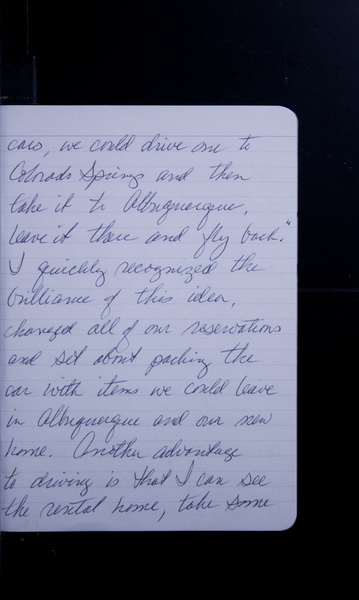 cars, we could drive one to
Colorado Springs and then
take it to Albuquerque,
leave it there and fly back."
I quickly recognized the
brilliance of this idea,
changed all of our reservations
and set about packing the
car with items we could leave
in Albuquerque and our new
home. Another advantage
to driving is that I can see
the rental home, take some